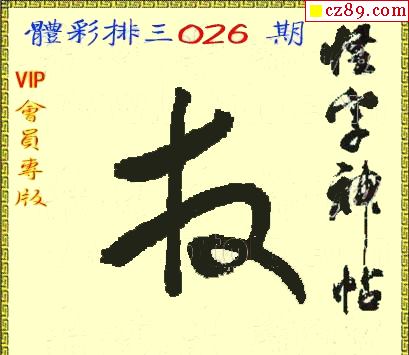 cz89.com
體彩排三026 期
VIP
會員專版
怪字神帖